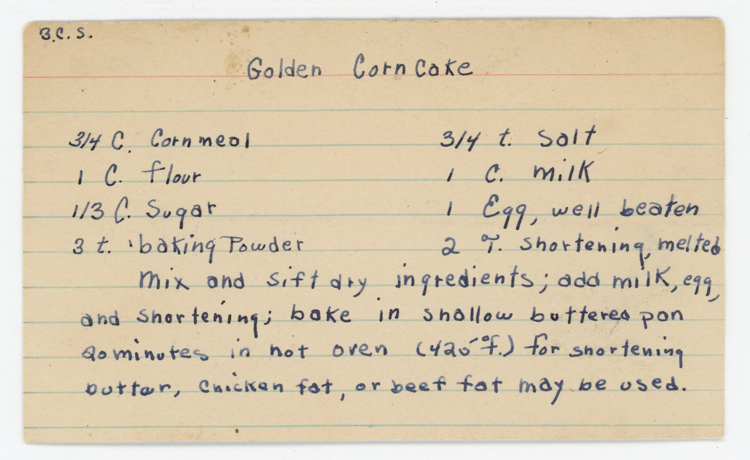 B.C.S.
Golden Corn Cake
3/4 C. Cornmeal
1 C. flour
1/3 C. Sugar
3 t. baking Powder
3/4 t. Salt
1 C. milk
1 Egg, well beaten
2 T. shortening, melted
Mix and sift dry ingredients; add milk, egg,
and shortening; bake in shallow buttered pan
20 minutes in hot oven (425°f.) for shortening
butter, chicken fat, or beef fat may be used.